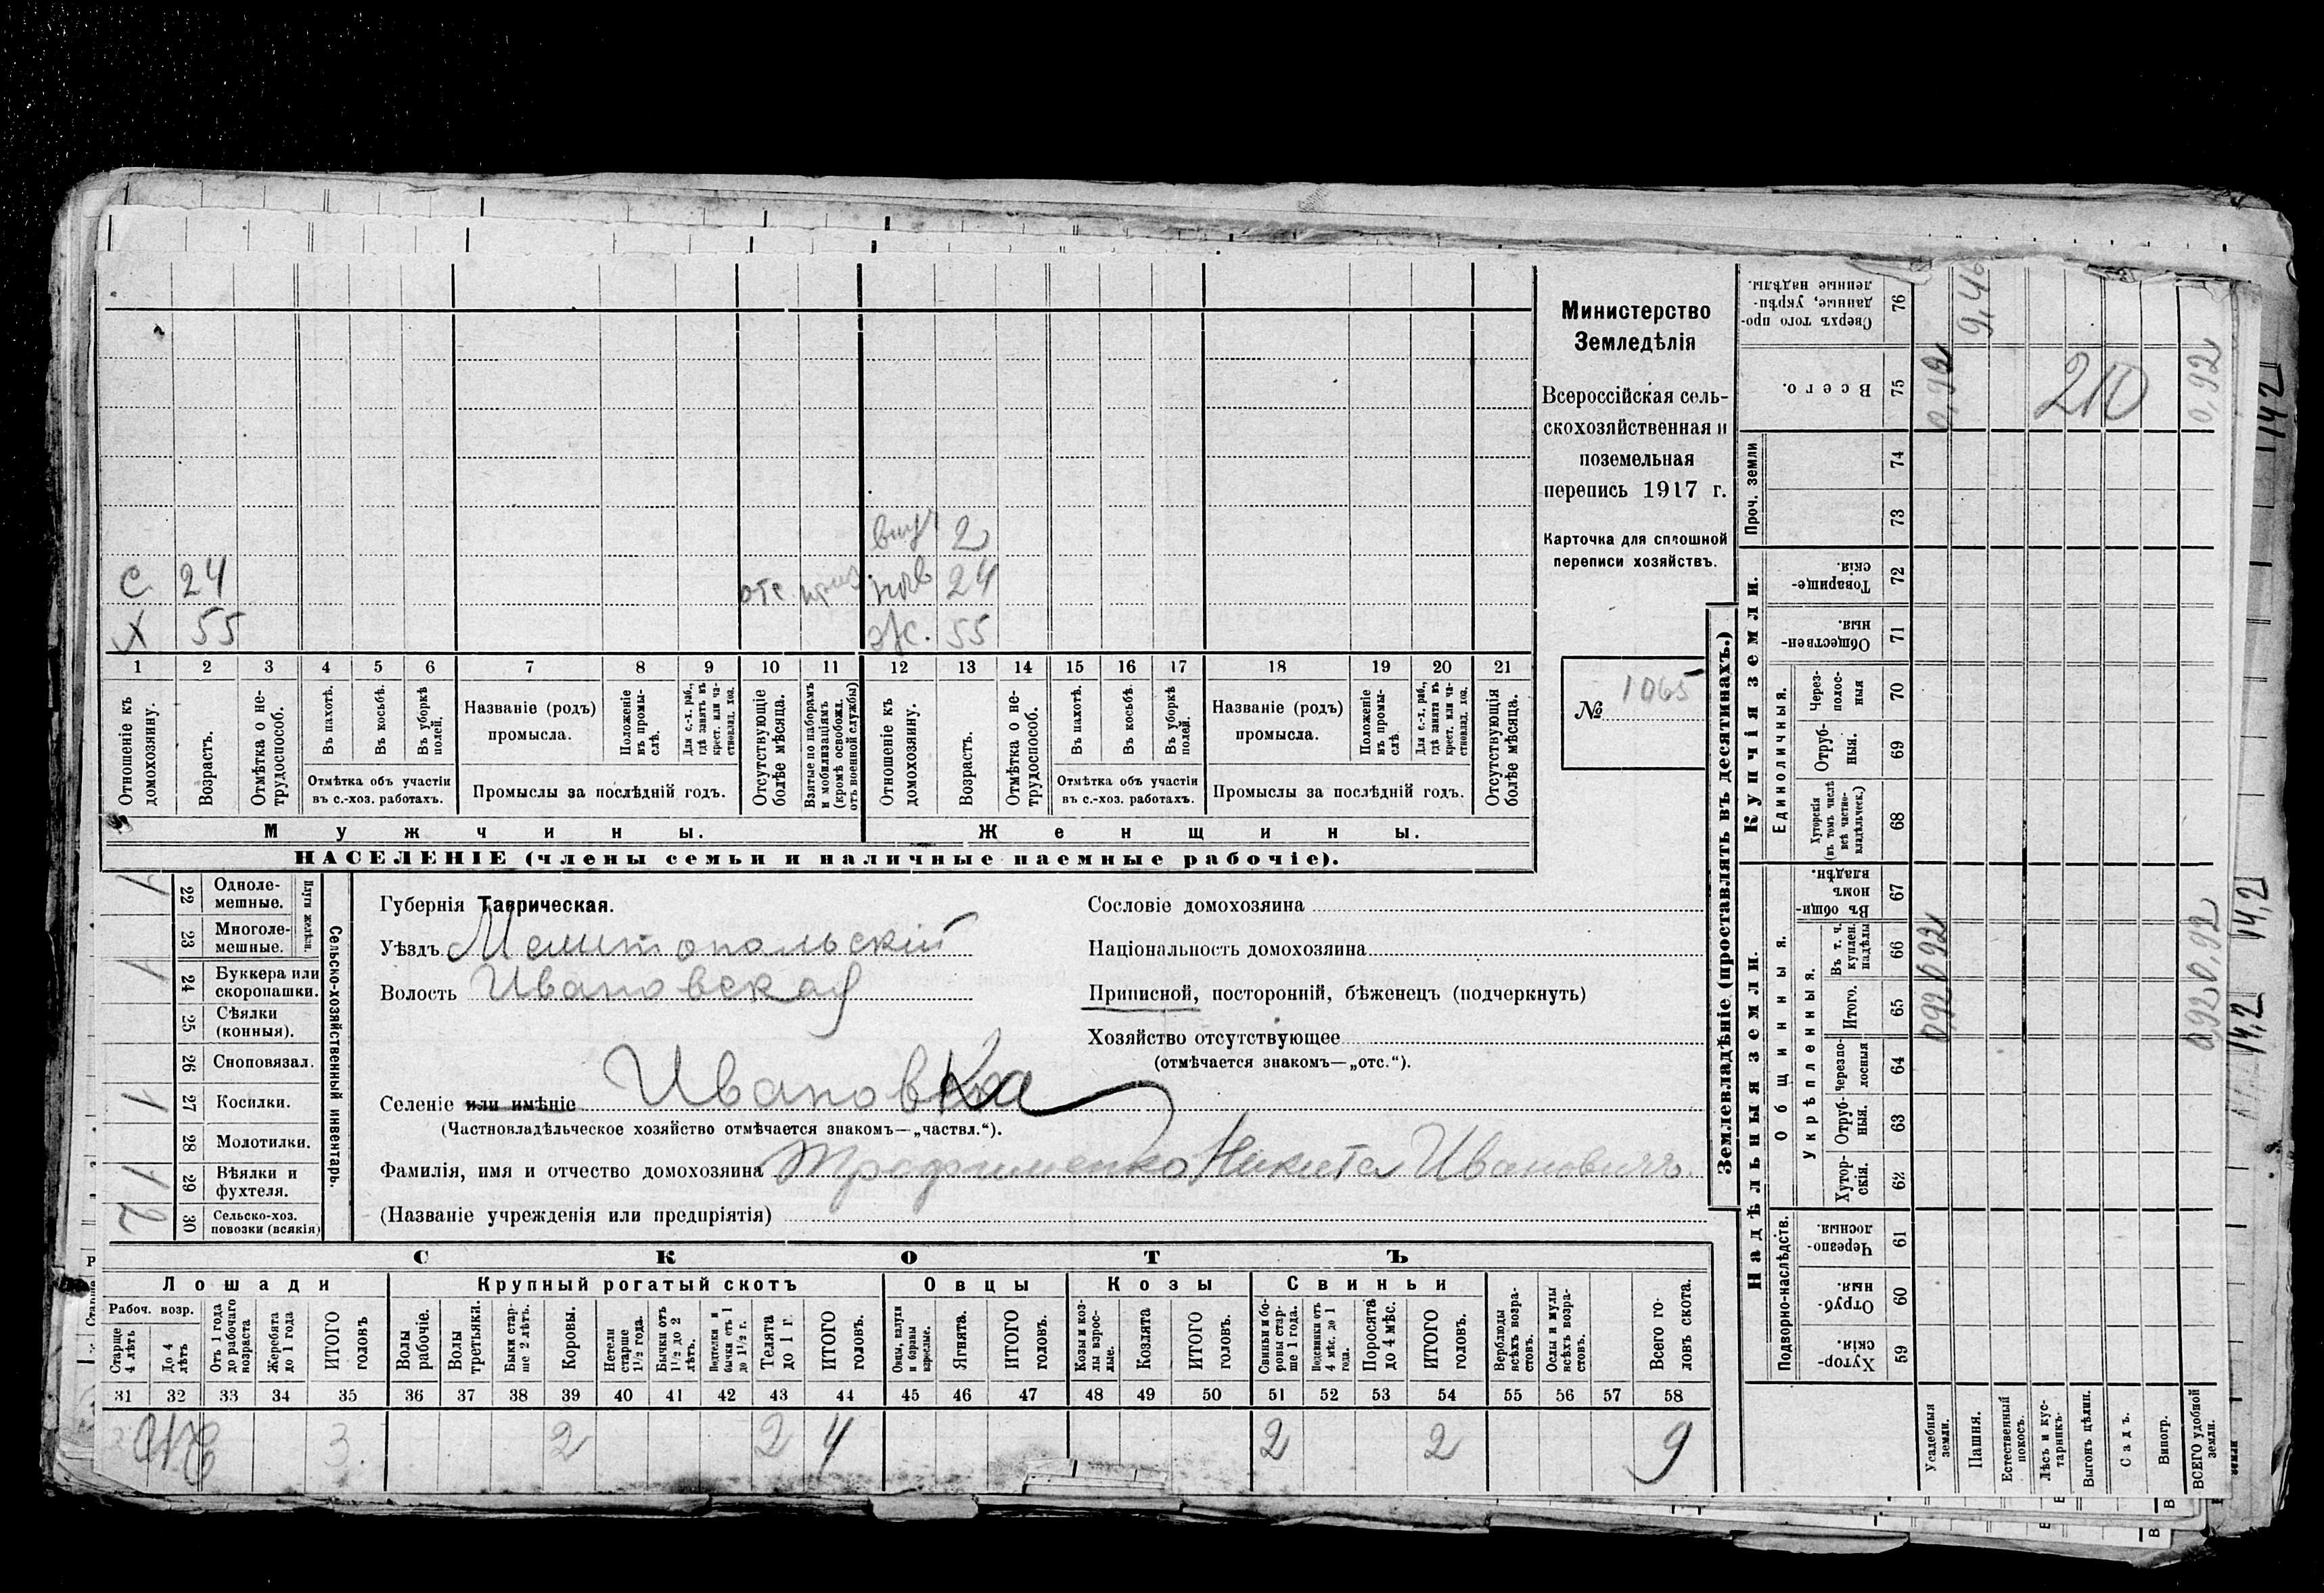 внуч 2
С 24 отс. приз нев 24
Х 55 ж. 55
1 2 3 4 5 6 7 8 9 10 11 12 13 14 15 16 17 18 19 20 21
Отношеніе къ домохозяину.
Возрастъ.
Отмѣтка о нетрудоспособ.
Въ пахотѣ.
Въ косьбѣ.
Въ уборкѣ полей.
Отмѣтка объ участіи въ с.-хоз. работахъ.
Названіе (родъ) промысла.
Положеніе въ промыслѣ.
Для с.-х. раб., гдѣ занятъ въ крест. или частновлад. хоз.
Промыслы за послѣдній годъ.
Отсутствующіе болѣе мѣсяца.
Взятые по наборамъ и мобилизаціямъ (кромѣ освобожд. отъ военной службы)
Отношеніе къ домохозяину.
Возрастъ.
Отмѣтка о нетрудоспособ.
Въ пахотѣ.
Въ косьбѣ.
Въ уборкѣ полей.
Отмѣтка объ участіи въ с.-хоз. работахъ.
Названіе (родъ) промысла.
Положеніе въ промыслѣ.
Для с.-х. раб., гдѣ занята въ крест. или частновлад. хоз.
Промыслы за послѣдній годъ.
Отсутствующія болѣе мѣсяца.
Мужчины. Женщины.
НАСЕЛЕНІЕ (члены семьи и наличные наемные рабочіе).
Министерство
Земледѣлія
Всероссійская сель-
скохозяйственная и
поземельная
перепись 1917 г.
Карточка для сплошной
переписи хозяйствъ.
№ 1065
1 22 Однолемешные.
23 Многолемешные.
Плуги желѣзн.
1 24 Буккера или скоропашки.
25 Сѣялки (конныя).
26 Сноповязал.
1 27 Косилки.
28 Молотилки.
1 29 Вѣялки и фухтеля.
2 30 Сельско-хоз. повозки (всякія)
Сельско-хозяйственный инвентарь.
Губернія Таврическая.
Уѣздъ Мелитопольскій
Волость Ивановская
Селеніе или имѣніе Ивановка
(Частновладѣльческое хозяйство отмѣчается знакомъ—„частвл.“).
Фамилія, имя и отчество домохозяина Трофименко Никита Ивановичъ.
(Названіе учрежденія или предпріятія)
Сословіе домохозяина
Національность домохозяина
Приписной, посторонній, бѣженецъ (подчеркнуть)
Хозяйство отсутствующее
(отмѣчается знакомъ—„отс.“).
СКОТЪ
Лошади Крупный рогатый скотъ Овцы Козы Свиньи
Рабоч. возр.
Старше 4 лѣтъ
До 4 лѣтъ
Отъ 1 года до рабочаго возраста
Жеребята до 1 года
ИТОГО головъ
Волы рабочіе.
Волы третьяки.
Быки старше 2 лѣтъ.
Коровы.
Нетели старше 1½ года.
Бычки отъ 1½ до 2 лѣтъ.
Нетелики и бычки отъ 1 до 1½ г.
Телята до 1 г.
ИТОГО головъ.
Овцы, валухи и бараны взрослые.
Ягнята.
ИТОГО головъ.
Козы и козлы взрослые.
Козлята
ИТОГО головъ.
Свиньи и боровы старше 1 года.
Подсвинки отъ 4 мѣс. до 1 года.
Поросята до 4 мѣс.
ИТОГО головъ.
Верблюды всѣхъ возрастовъ.
Ослы и мулы всѣхъ возрастовъ.
Всего головъ скота.
31 32 33 34 35 36 37 38 39 40 41 42 43 44 45 46 47 48 49 50 51 52 53 54 55 56 57 58
3 2 2 4 2 2 9
Землевладѣніе (проставлять въ десятинахъ.)
Надѣльныя земли. Купчія земли. Проч. земли
Подворно-наслѣдств.
Общинныя.
Укрѣпленныя.
Единоличныя.
Хуторскія 59
Отрубныя. 60
Черезполосныя 61
Хуторскія. 62
Отрубныя. 63
Черезполосныя 64
Итого. 65
Въ т. ч. куплен. надѣлы 66
Въ общиномъ владѣн. 67
Хуторскія (въ томъ числѣ всѣ частновладѣльческ.) 68
Отрубныя. 69
Черезполосныя 70
Общественныя. 71
Товарищескія. 72
73
74
Всего. 75
Сверхъ того проданные, укрѣпленные надѣлы. 76
Усадебныя земли. 0,92 0,92 0,92
Пашня. 9,46
Естественный покосъ.
Лѣсъ и кустарникъ.
Выгонъ цѣлин.
Садъ.
Виногр.
ВСЕГО удобной земли. 0,92 0,92 0,92
210
14,2 14,2 14,2